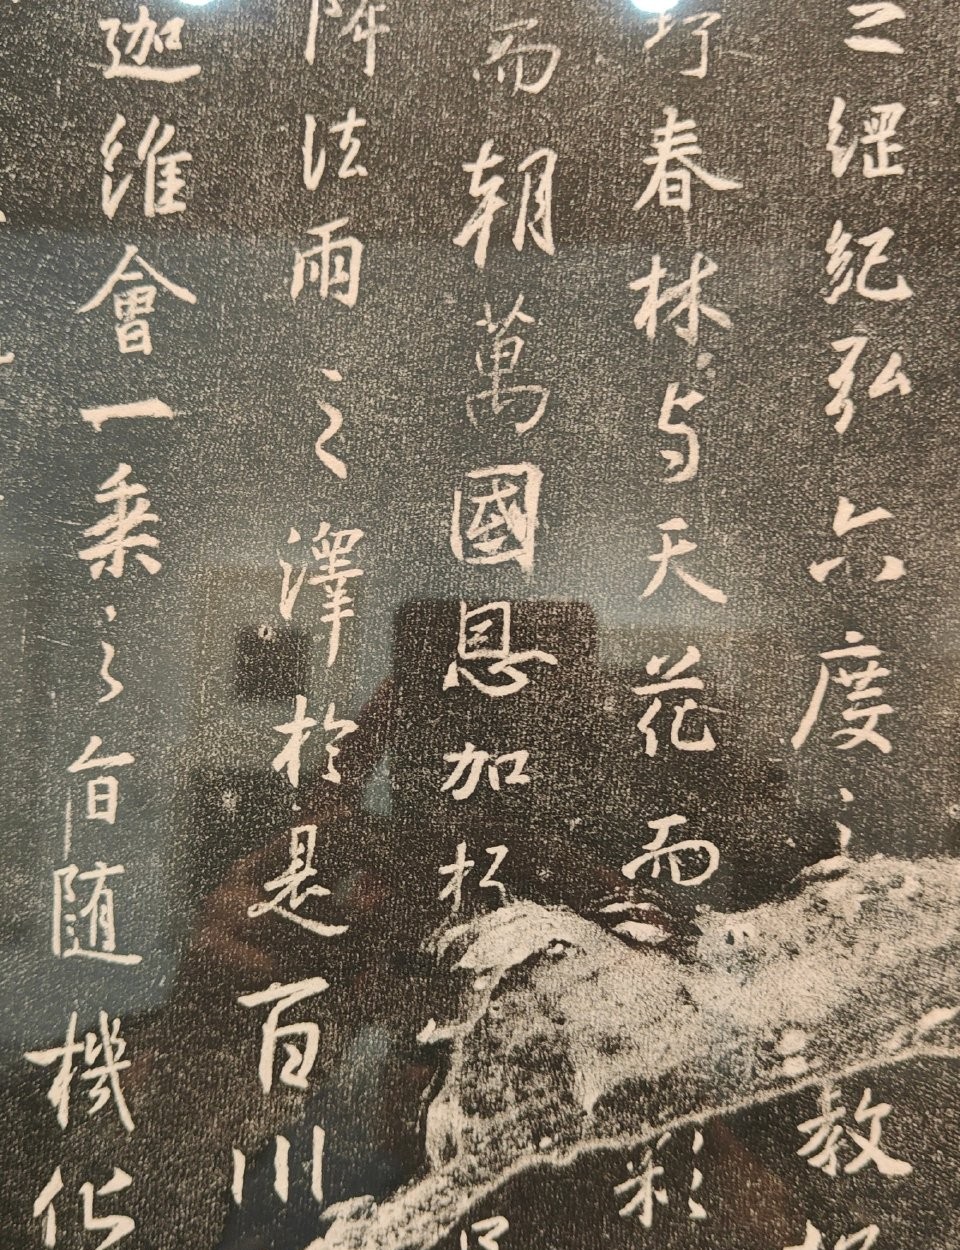 綱紀弘六度之教
春林与天花而彩
而朝萬國恩加朽
降法雨之澤於是百川
迦維會一乘之旨随機化